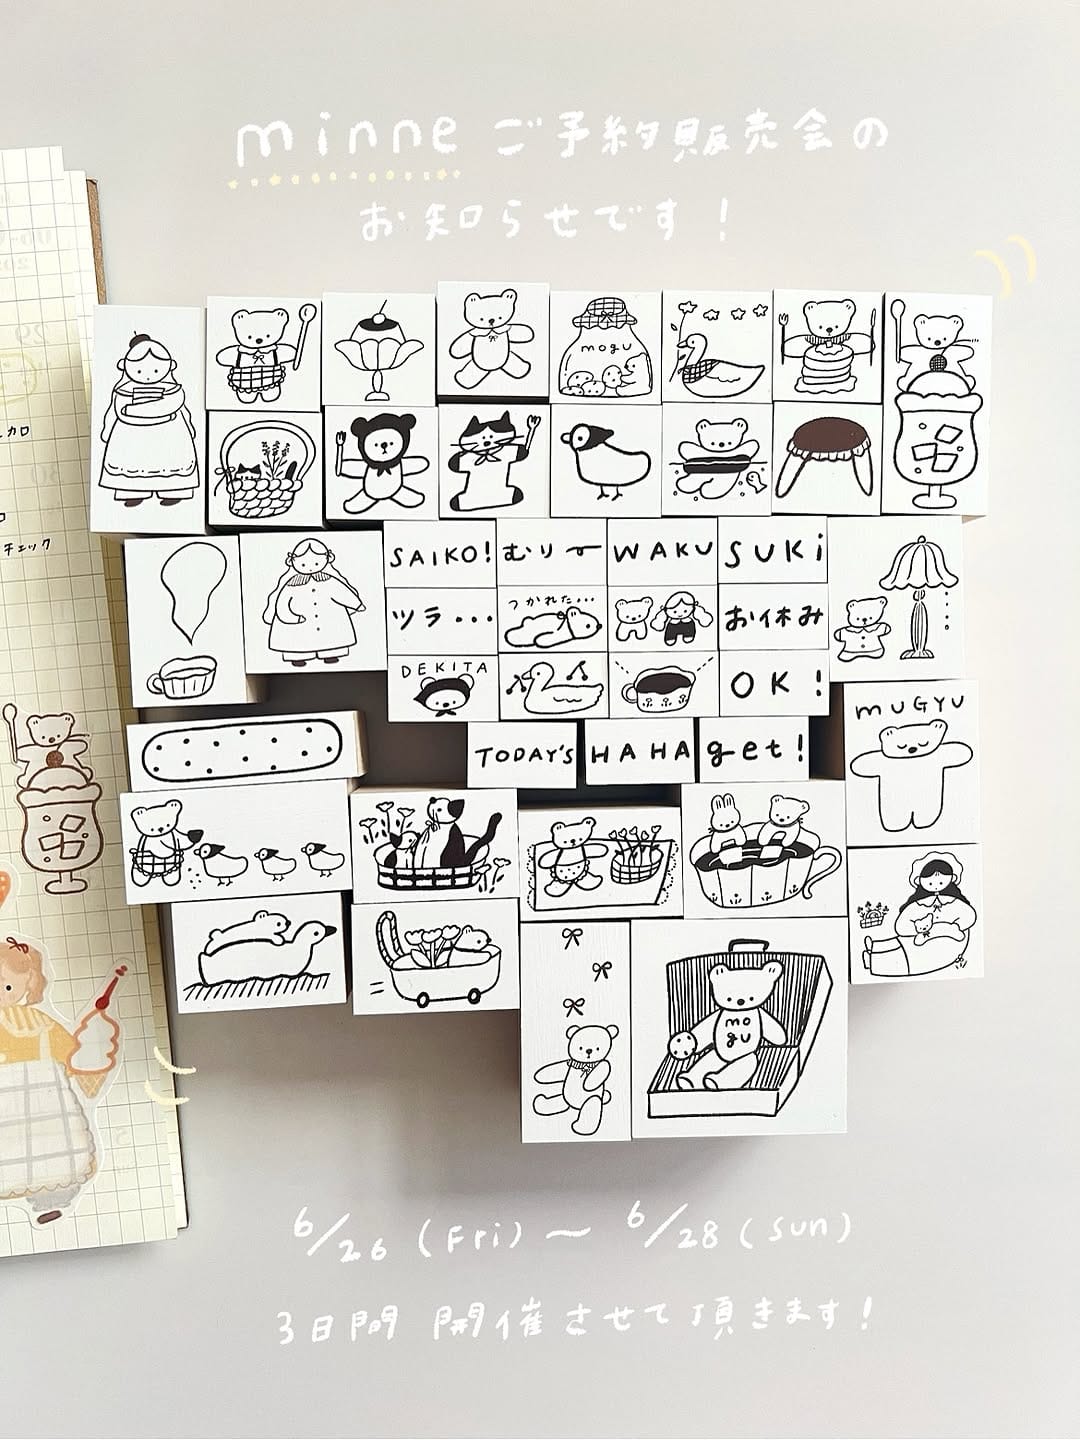 minne ご予約販売会の
お知らせです！
mogu
カロ
チェック
SAIKO!
むりー
WAKU
SUKi
ツラ・・・
つかれた・・・
お休み
DEKITA
OK!
MUGYU
TODAY'S
HAHA
get!
mo
gu
6/26 (Fri) 〜 6/28 (sun)
3日間 開催させて頂きます！